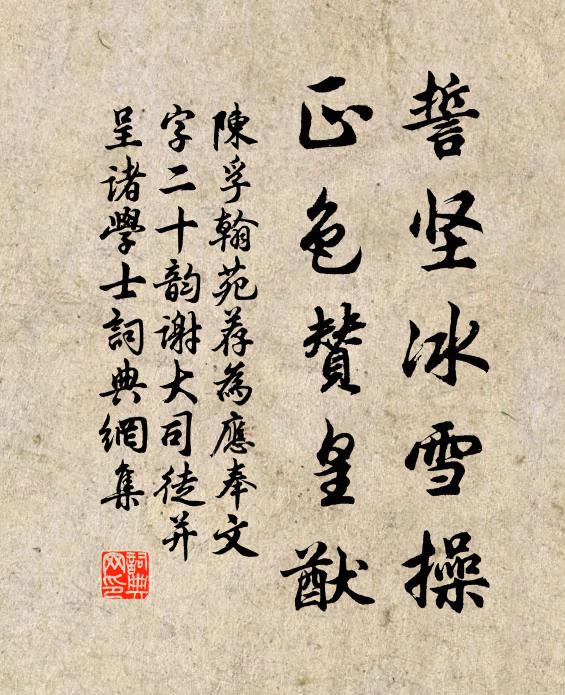 誓坚冰雪操
正色赞皇猷
陳孚翰苑荐為應奉文
字二十韵谢大司徒并
呈诸學士詞典網集
詞典
网印